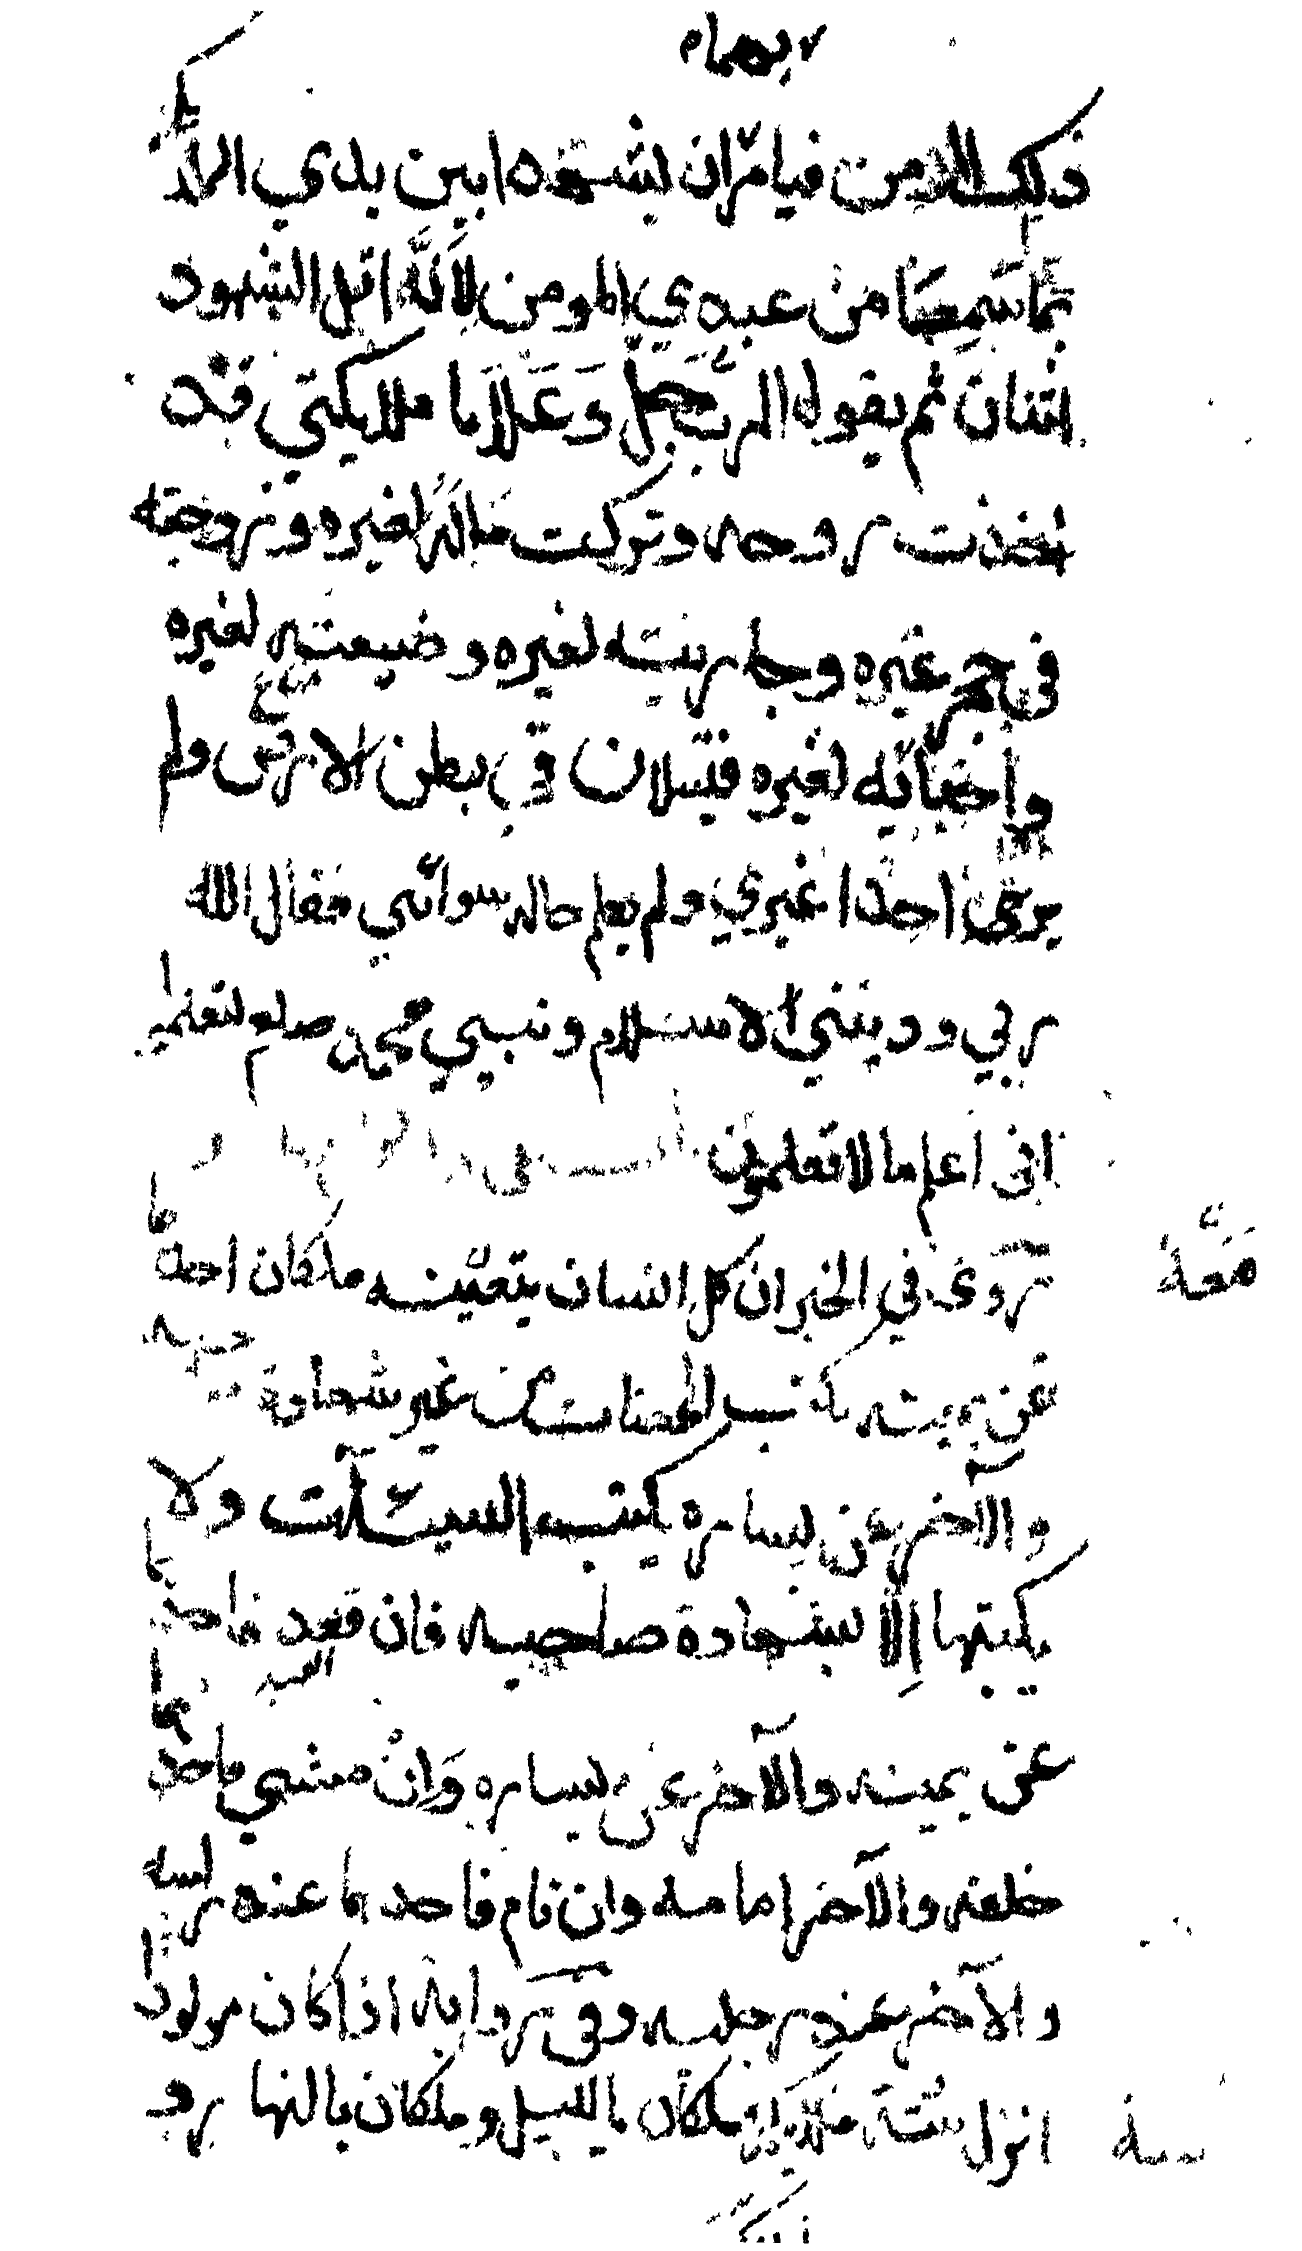 ذلك الارض فيامران يشهدا بين يدي الملك
بما سمعنا من عبدي المومن لأنّه اقل الشهود
اثنان ثم يقول الرب جلّ وَعَلَا يا ملايكتي قد
اخذت روحه وتركت مَالَهُ لغيره وزوجته
في حجر غيره وجاريته لغيره وضيعته لغيره
وأحبائه لغيره فيسلان في بطن الارض ولم
احدًا غيري ولم يعلم حاله سوائي فقال الله
ربي وديني الاسلام ونبيي محمد صلعم لتعلما
اني اعلم مالا تعلمون
رَوى في الخبر ان كل انسان معه ملكان احدهما
مَعَهُ
عن يمينه يكتب الحسنات من غير شهادة
والآخر عن يساره يكتب السيئآت ولا
يكتبها إلا بشهادة صاحبه فان قعد فاحدهما
العبد
عن يمينه والآخر عن يساره وَانْ مشي فاحدهما
خلفه والآخر امامه وان نام فاحدهما عند راسه
والآخر عند رجليه وفي رواية اذا كان مولودًا
انزل ستّة ملايكة ملكان بالليل وملكان بالنهار